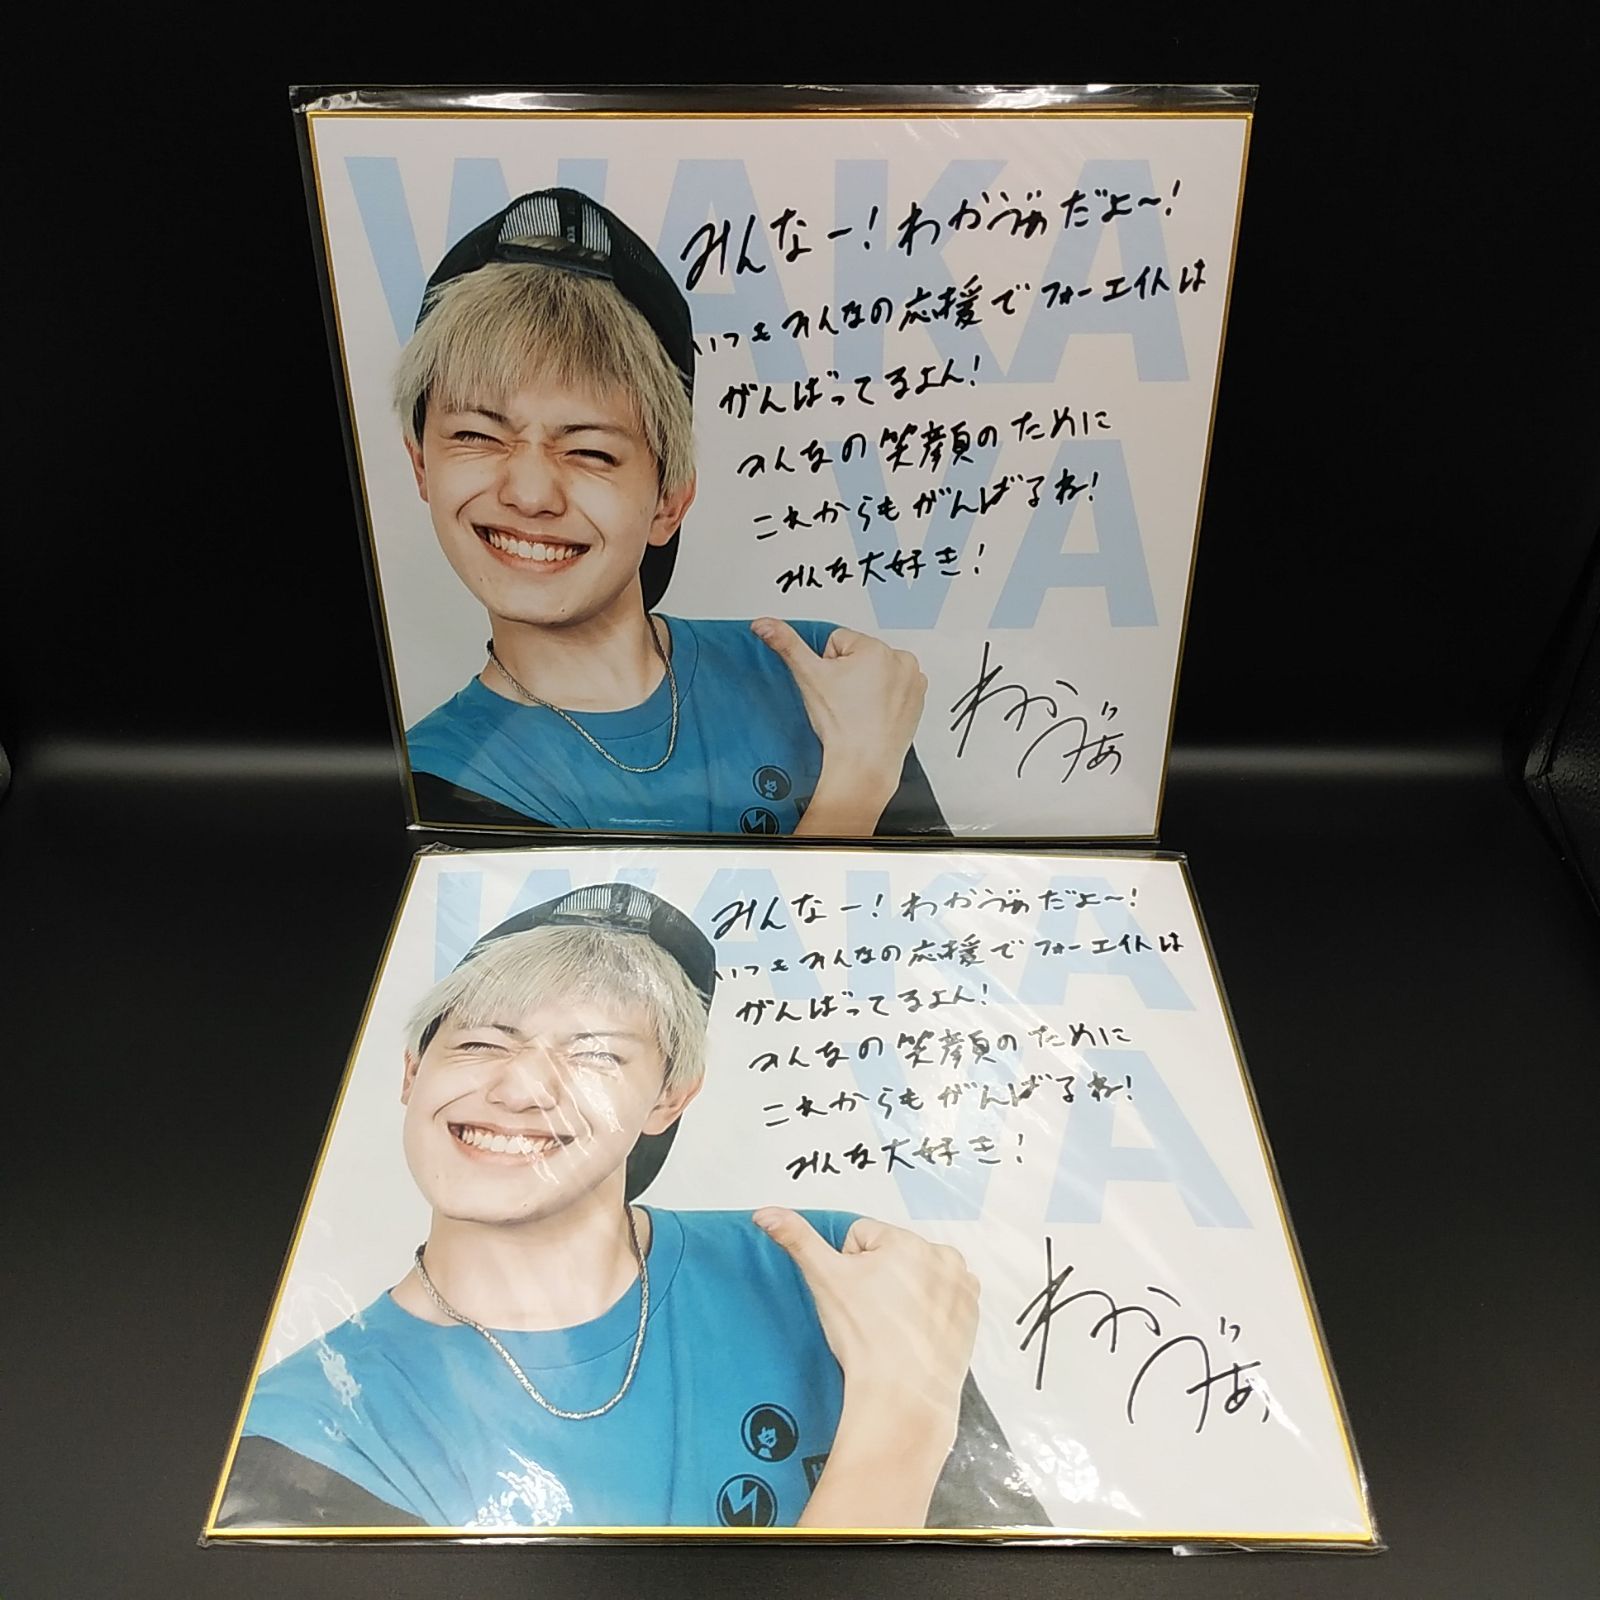 WAKA
VA
みんなー！わかゔぁだよ～！
いつもみんなの応援でフォーエイトは
がんばってるよん！
みんなの笑顔のために
これからもがんばるね！
みんな大好き！
わか
ゔぁ
WAKA
VA
みんなー！わかゔぁだよ～！
いつもみんなの応援でフォーエイトは
がんばってるよん！
みんなの笑顔のために
これからもがんばるね！
みんな大好き！
わか
ゔぁ